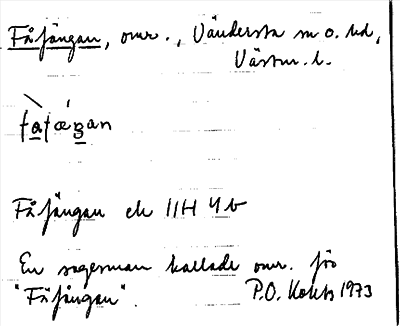 Fåfängan, omr., Vändersta m o. hd,
Västm. l.
fàfǽŋan
Fåfängan ek 11H 4b
En sagesman kallade omr. för
"Fåfängan". P.O. 1973